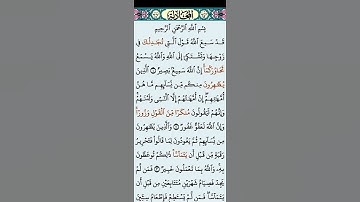 المجادلة
بِسْمِ اللَّهِ الرَّحْمَٰنِ الرَّحِيمِ
قَدْ سَمِعَ اللَّهُ قَوْلَ الَّتِي تُجَادِلُكَ فِي
زَوْجِهَا وَتَشْتَكِي إِلَى اللَّهِ وَاللَّهُ يَسْمَعُ
تَحَاوُرَكُمَا إِنَّ اللَّهَ سَمِيعٌ بَصِيرٌ ۝ الَّذِينَ
يُظَاهِرُونَ مِنكُم مِّن نِّسَائِهِم مَّا هُنَّ
أُمَّهَاتِهِمْ إِنْ أُمَّهَاتُهُمْ إِلَّا اللَّائِي وَلَدْنَهُمْ
وَإِنَّهُمْ لَيَقُولُونَ مُنكَرًا مِّنَ الْقَوْلِ وَزُورًا
وَإِنَّ اللَّهَ لَعَفُوٌّ غَفُورٌ ۝ وَالَّذِينَ يُظَاهِرُونَ
مِن نِّسَائِهِمْ ثُمَّ يَعُودُونَ لِمَا قَالُوا فَتَحْرِيرُ
رَقَبَةٍ مِّن قَبْلِ أَن يَتَمَاسَّا ذَٰلِكُمْ تُوعَظُونَ
بِهِ وَاللَّهُ بِمَا تَعْمَلُونَ خَبِيرٌ ۝ فَمَن لَّمْ
يَجِدْ فَصِيَامُ شَهْرَيْنِ مُتَتَابِعَيْنِ مِن قَبْلِ أَن
يَتَمَاسَّا فَمَن لَّمْ يَسْتَطِعْ فَإِطْعَامُ سِتِّينَ